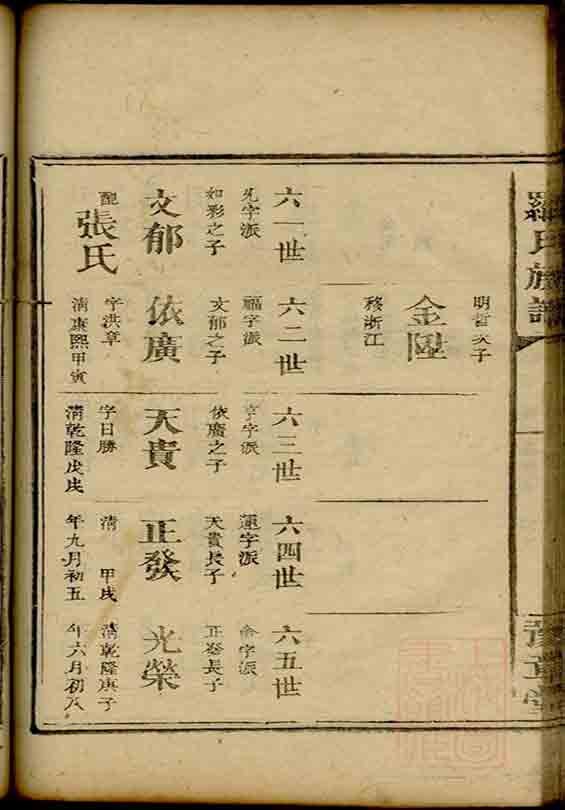 羅氏族譜
明哲次子
金陞
移浙江
六一世
先字派
如彩之子
文郁
配
張氏
六二世
福字派
文郁之子
依廣
字洪章
清康熙甲寅
六三世
亨字派
依廣之子
天貴
字日勝
清乾隆戊戌
六四世
運字派
天貴長子
正發
清 甲戌
年九月初五
六五世
字派
正發長子
光榮
清乾隆庚子
年六月初八